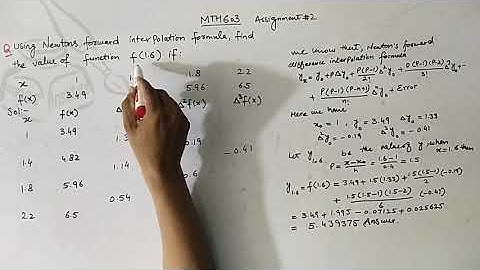 MTH603 Assignment #2
Q Using Newtons forward interpolation formula, find
the value of function f(1.6) if:
x 1 1.8 2.2
f(x) 3.49 5.96 6.5
Sol:-
x f(x) Δ²f(x) Δ³f(x)
1 3.49
1.4 4.82
1.14 -0.41
1.8 5.96
0.54
2.2 6.5
We know that, Newton's forward
difference interpolation formula
+ Error
Here we have
x₀ = 1, y₀ = 3.49 Δy₀ = 1.33
Δ²y₀ = -0.19 Δ³y₀ = -0.41
Let y₁.₆ be the value of y when x = 1.6 then
P = x-x₀/h = 1.6-1/0.4 = 1.5
y₁.₆ = f(1.6) = 3.49 + 1.5(1.33) + 1.5(1.5-1)/2 (-0.19)
+ 1.5(1.5-1)(1.5-2)/6 (-0.41)
= 3.49 + 1.995 - 0.07125 + 0.025625
= 5.439375 Answer.